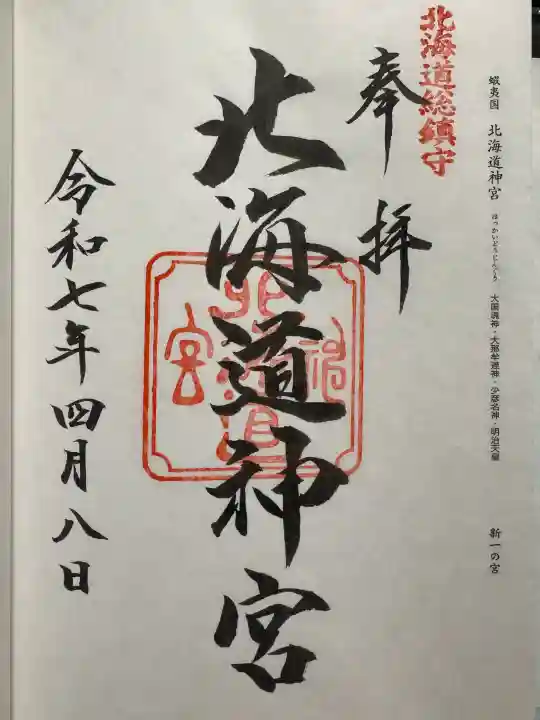 蝦夷国 北海道神宮 ほっかいどうじんぐう 大国魂神・大那牟遅神・少彦名神・明治天皇 新一の宮
北海道総鎮守
奉拝
北海道神宮
北海道神宮
令和七年四月八日